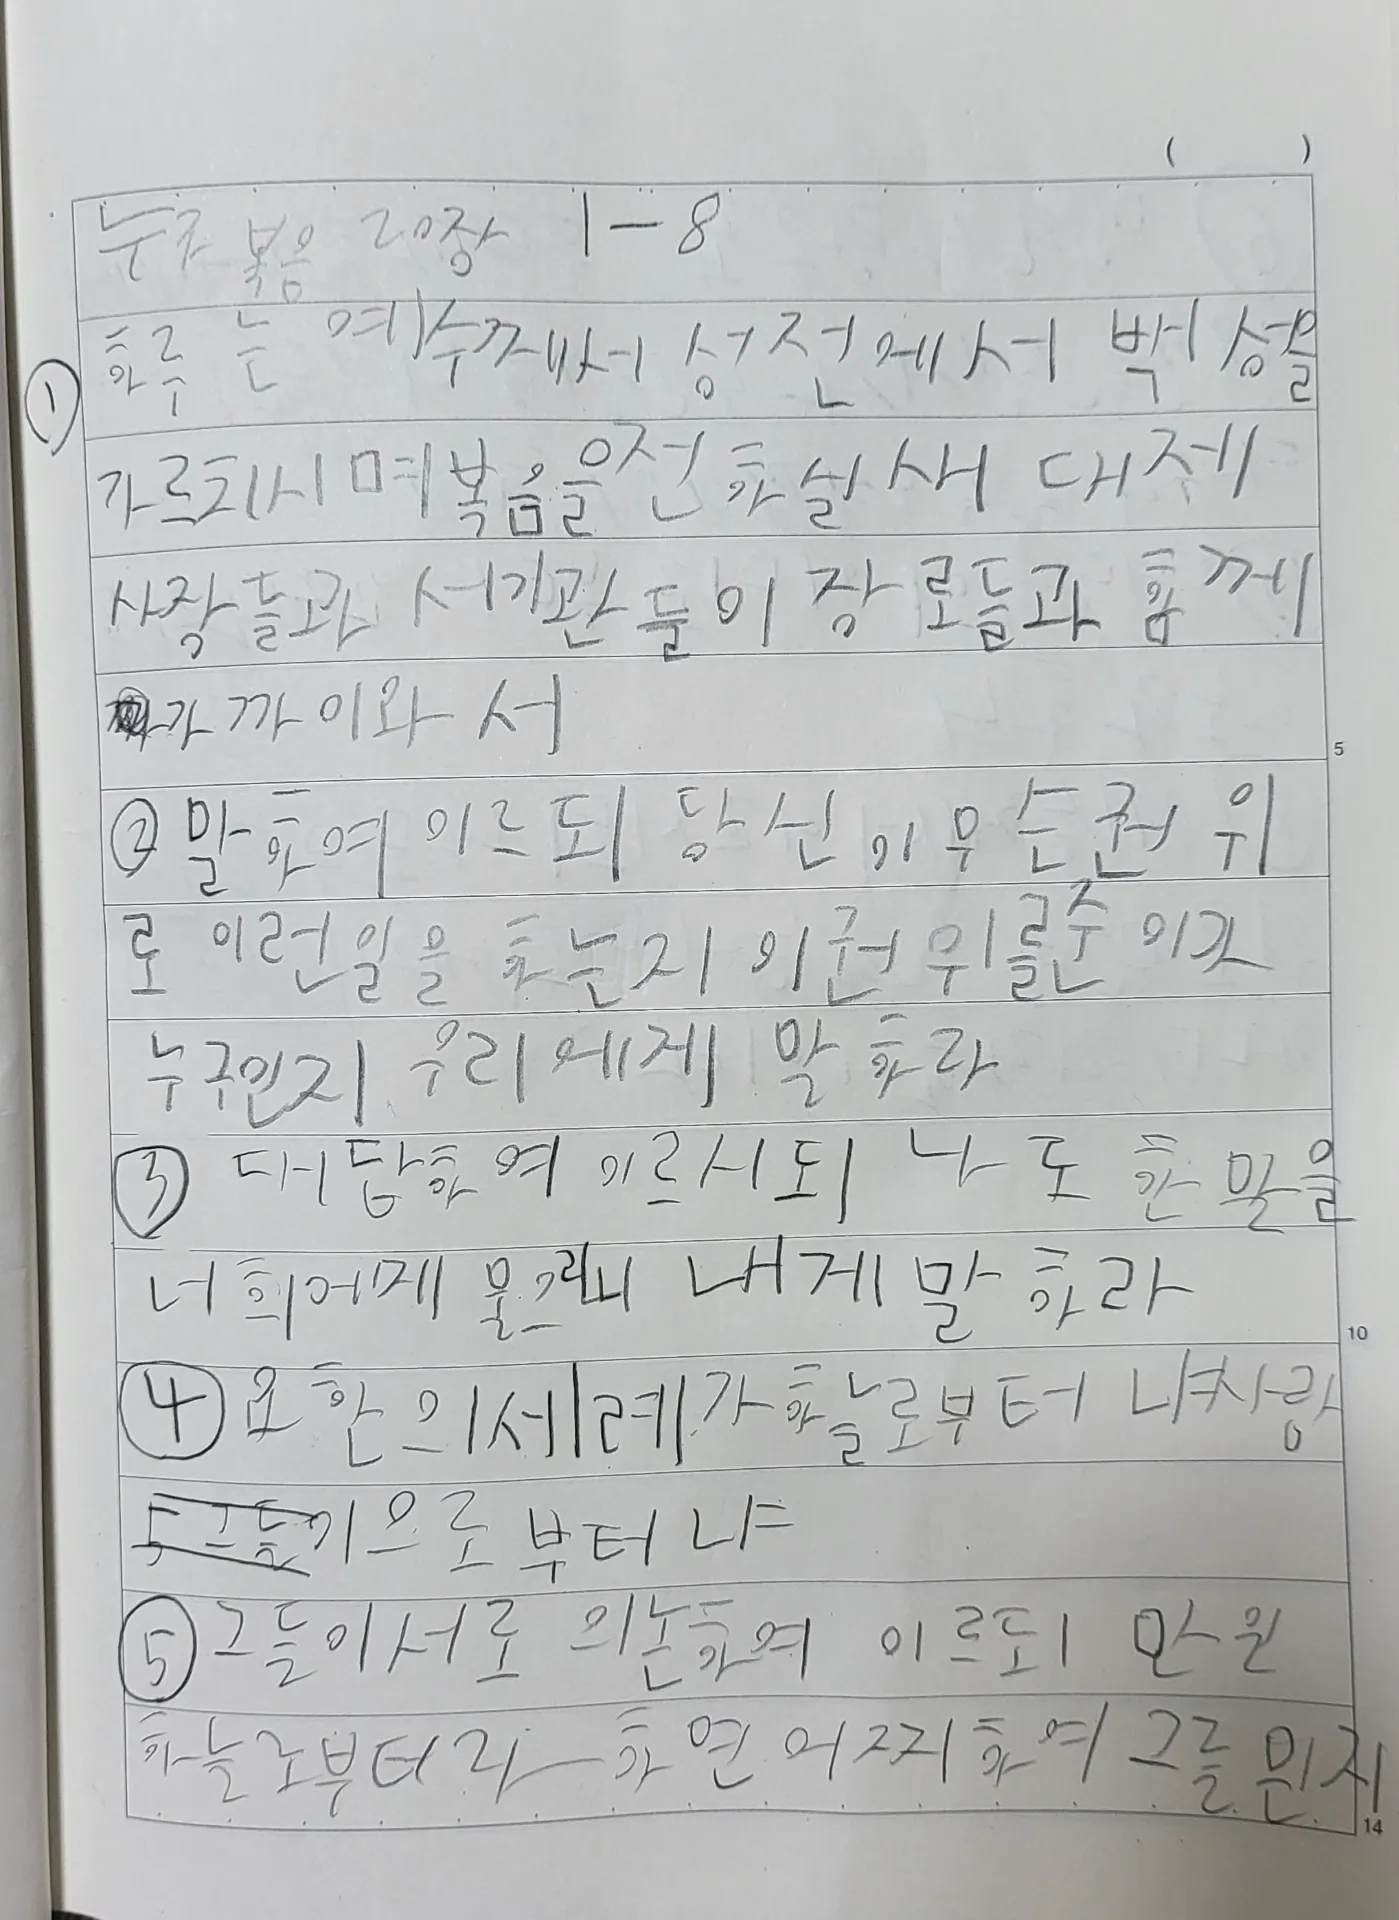 ( )
누가 복음 20장 1-8
① 하루는 예수께서 성전에서 백성을
가르치시며 복음을 전하실새 대제
사장들과 서기관들이 장로들과 함께
가까이와서
② 말하여 이르되 당신이 무슨권위
로 이런일을 하는지 이권위를준이가
누구인지 우리에게 말하라
③ 대답하여 이르시되 나도 한 말을
너희에게 물으리니 내게 말하라
④ 요한의 세례가 하늘로부터냐 사람
으로부터냐
⑤ 그들이 서로 의논하여 이르되 만일
하늘로부터라 하면 어찌하여 그를 믿지
5
10
14